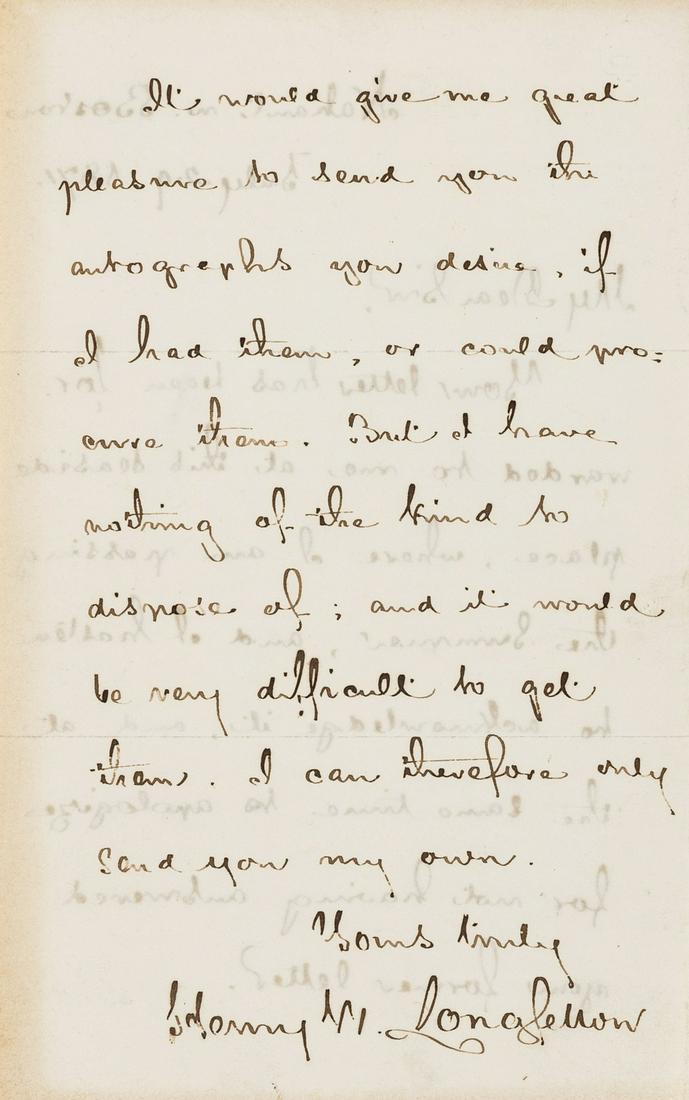 It would give me great
pleasure to send you the
autographs you desire, if
I had them, or could pro=
cure them. But I have
nothing of the kind to
dispose of; and it would
be very difficult to get
them. I can therefore only
send you my own.
Yours truly
Henry W. Longfellow